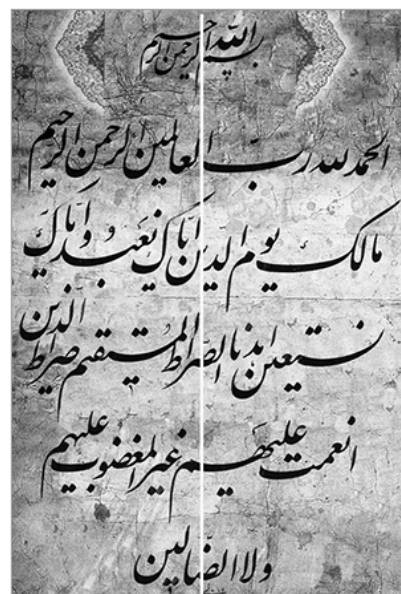 بسم الله الرحمن الرحیم
الحمدلله رب العالمین الرحمن الرحیم
مالک یوم الدین ایاک نعبد وایاک
نستعین اهدنا الصراط المستقیم صراط الذین
انعمت علیهم غیر المغضوب علیهم
ولا الضالین